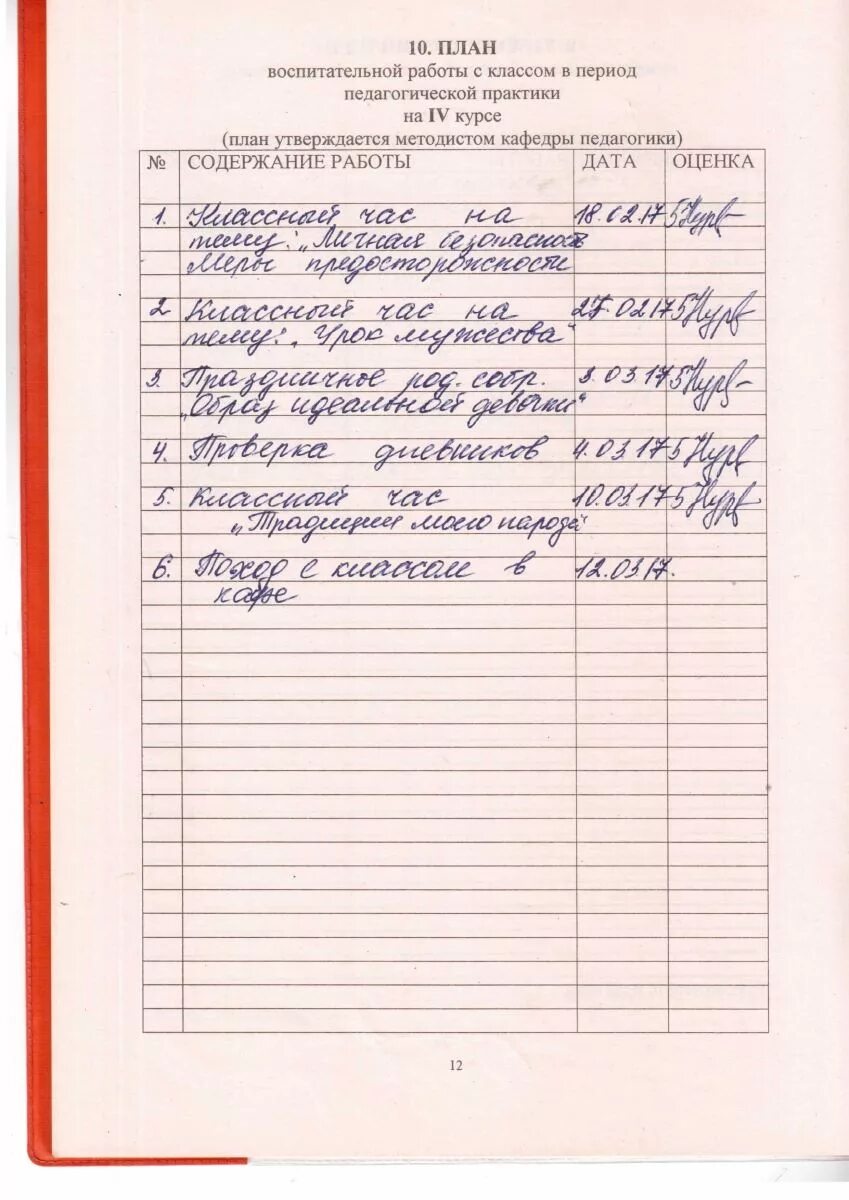 10. ПЛАН
воспитательной работы с классом в период
педагогической практики
на IV курсе
(план утверждается методистом кафедры педагогики)
№ СОДЕРЖАНИЕ РАБОТЫ ДАТА ОЦЕНКА
1. Классный час на 18.02.17 5
тему: „Личная безопасность
Меры предосторожности
2 Классный час на 27.02.17 5
тему: „Урок мужества"
3. Праздничное род. собр. 3.03.17 5
„Образ идеальной девочки"
4. Проверка дневников 4.03.17 5
5. Классный час 10.03.17 5
„Традиции моего народа"
6. Поход с классом в 12.03.17.
кафе
12